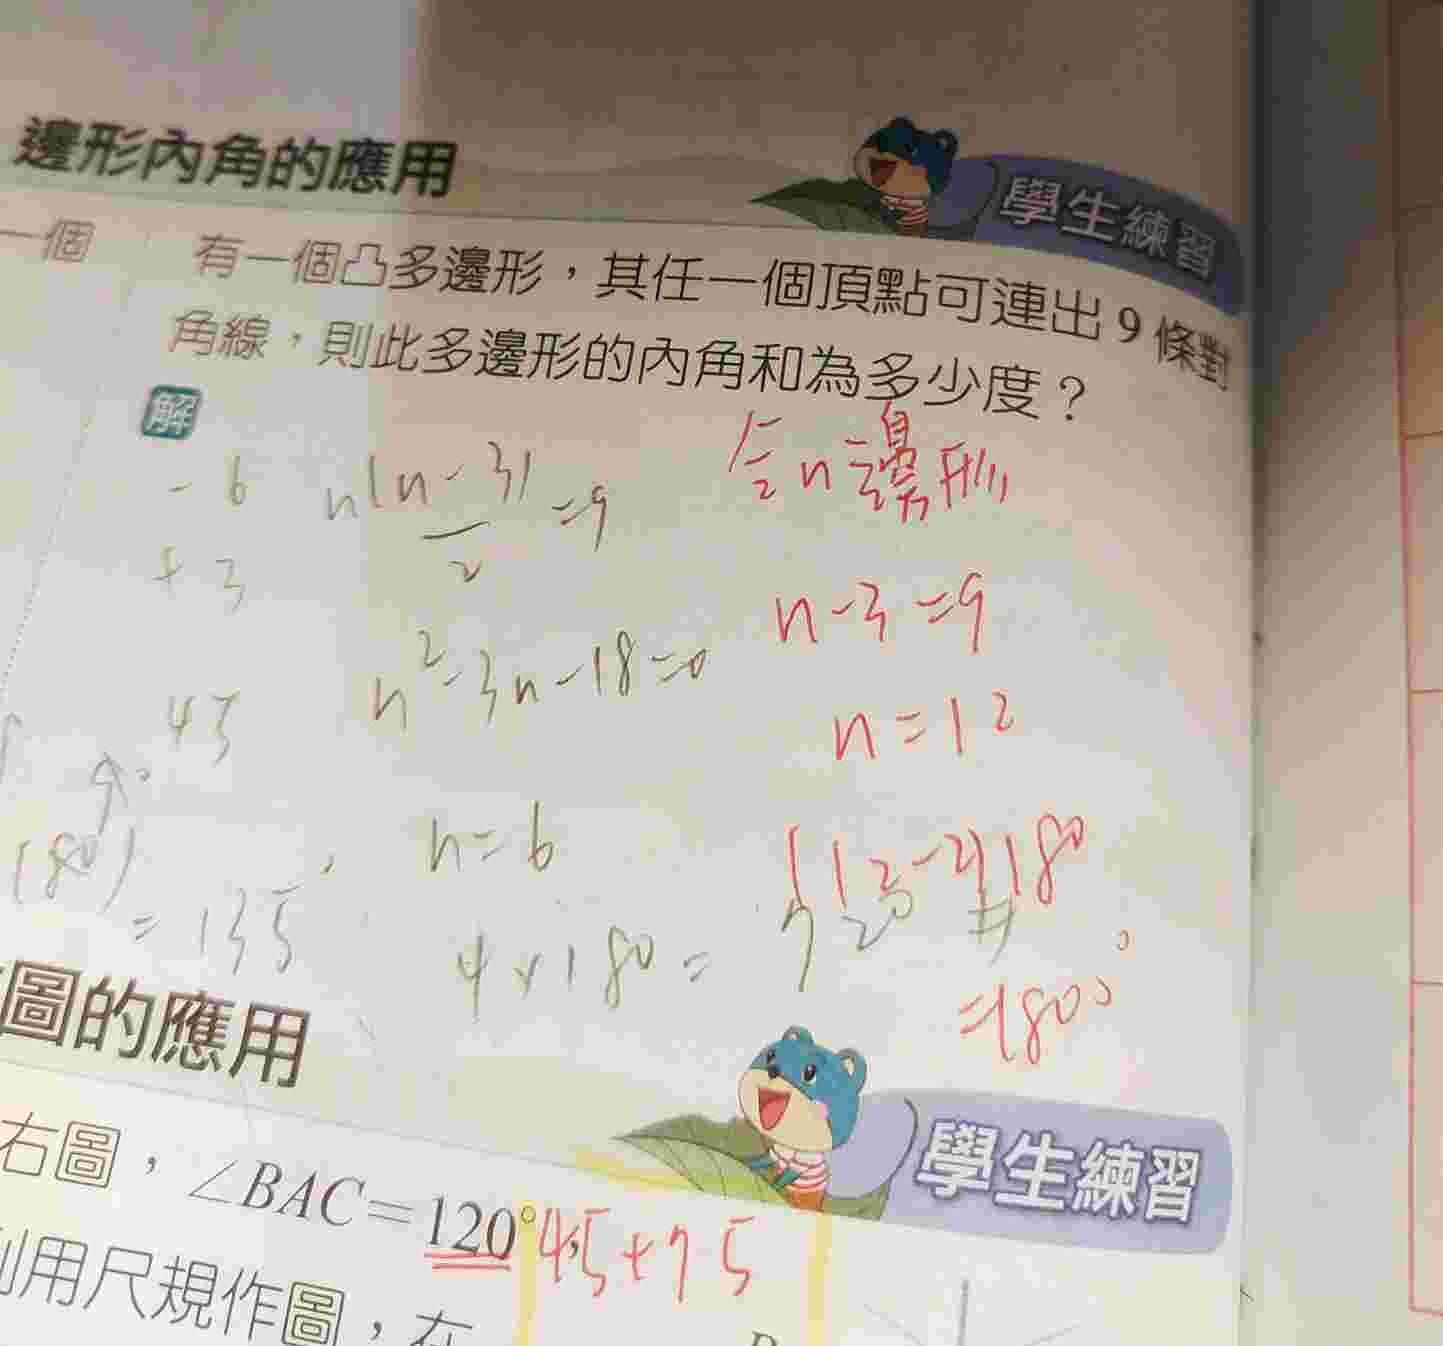 邊形內角的應用
學生練習
一個
有一個凸多邊形，其任一個頂點可連出 9 條對
角線，則此多邊形的內角和為多少度？
解
-6
+3
n(n-3)
2
=9
n²-3n-18=0
n=6
4×180=720
令n邊形
n-3=9
n=12
(12-2)180
=1800°
45
90
180)
=135°
圖的應用
學生練習
右圖，∠BAC=120°
45+75
利用尺規作圖，在